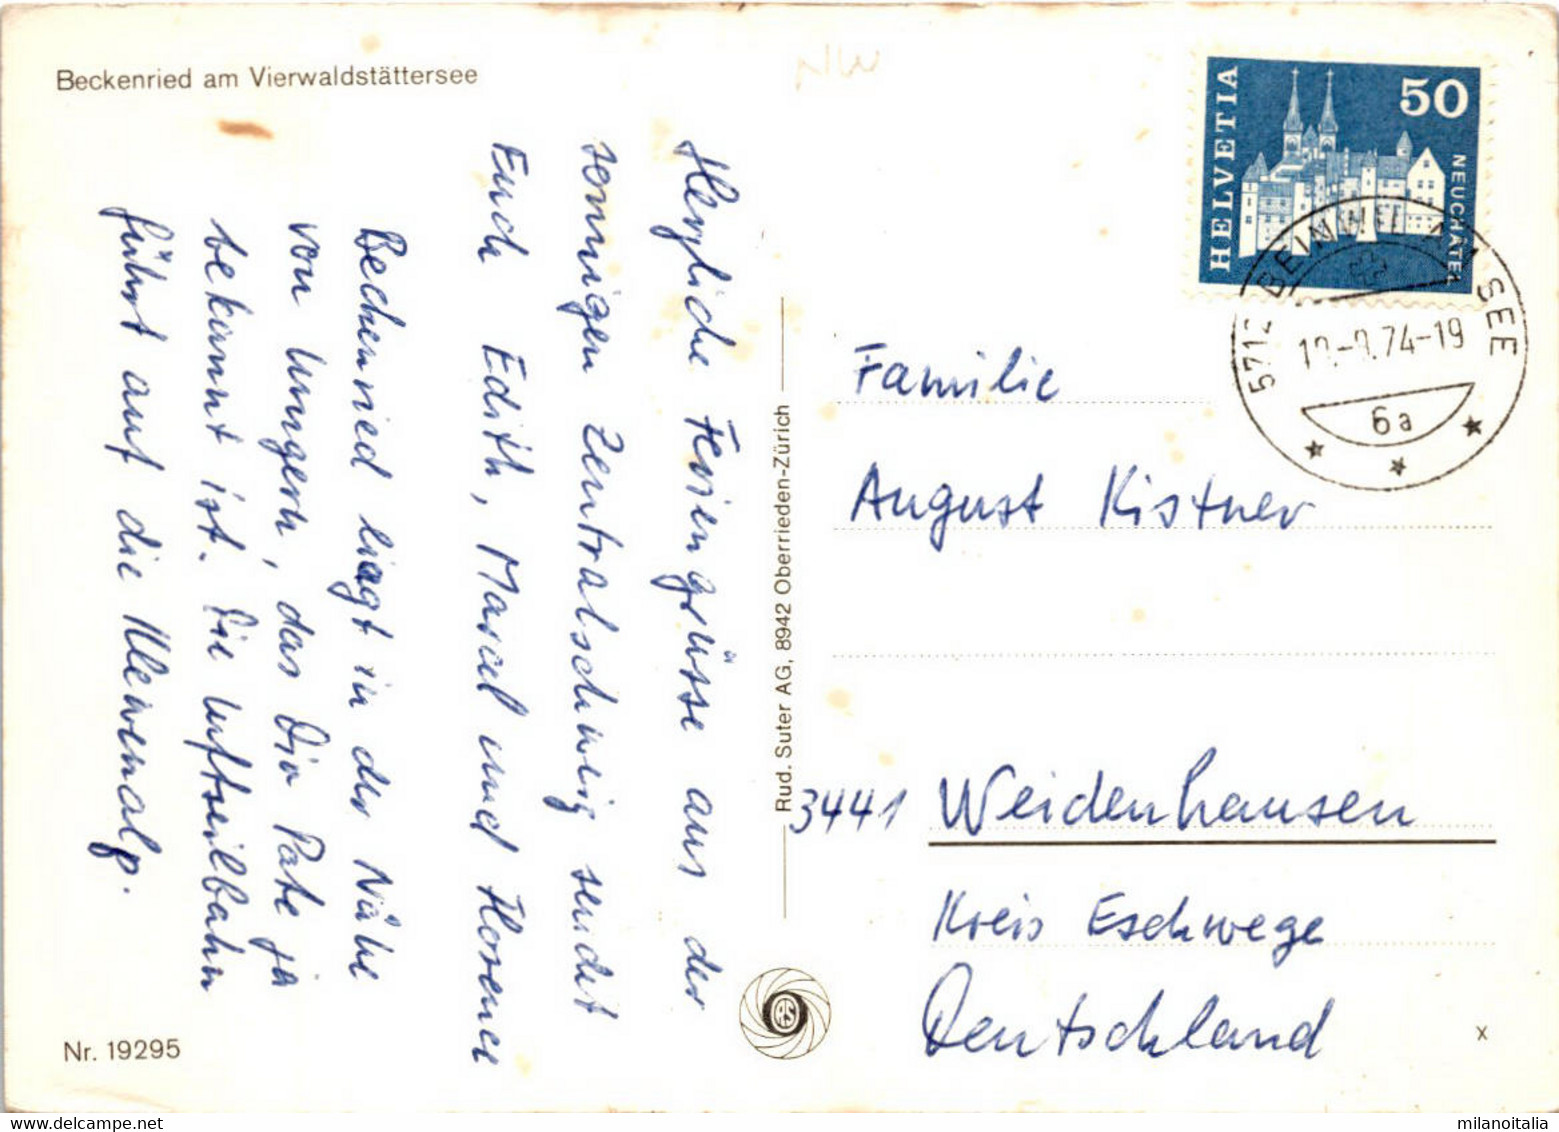 Beckenried am Vierwaldstättersee
NW
Herzliche Feriengrüsse aus der
sonnigen Zentralschweiz sendet
Euch Edith, Marcel und Florence
Beckenried liegt in der Nähe
von Luzern, das Dir Pate ja
bekannt ist. Die Luftseilbahn
führt auf die Klewenalp.
Nr. 19295
Rud. Suter AG, 8942 Oberrieden-Zürich
RS
HELVETIA
50
NEUCHÂTEL
5712 BEINWIL AM SEE
74-19
6a
Familie
August Kistner
3441 Weidenhausen
Kreis Eschwege
Deutschland
x
milanoitalia